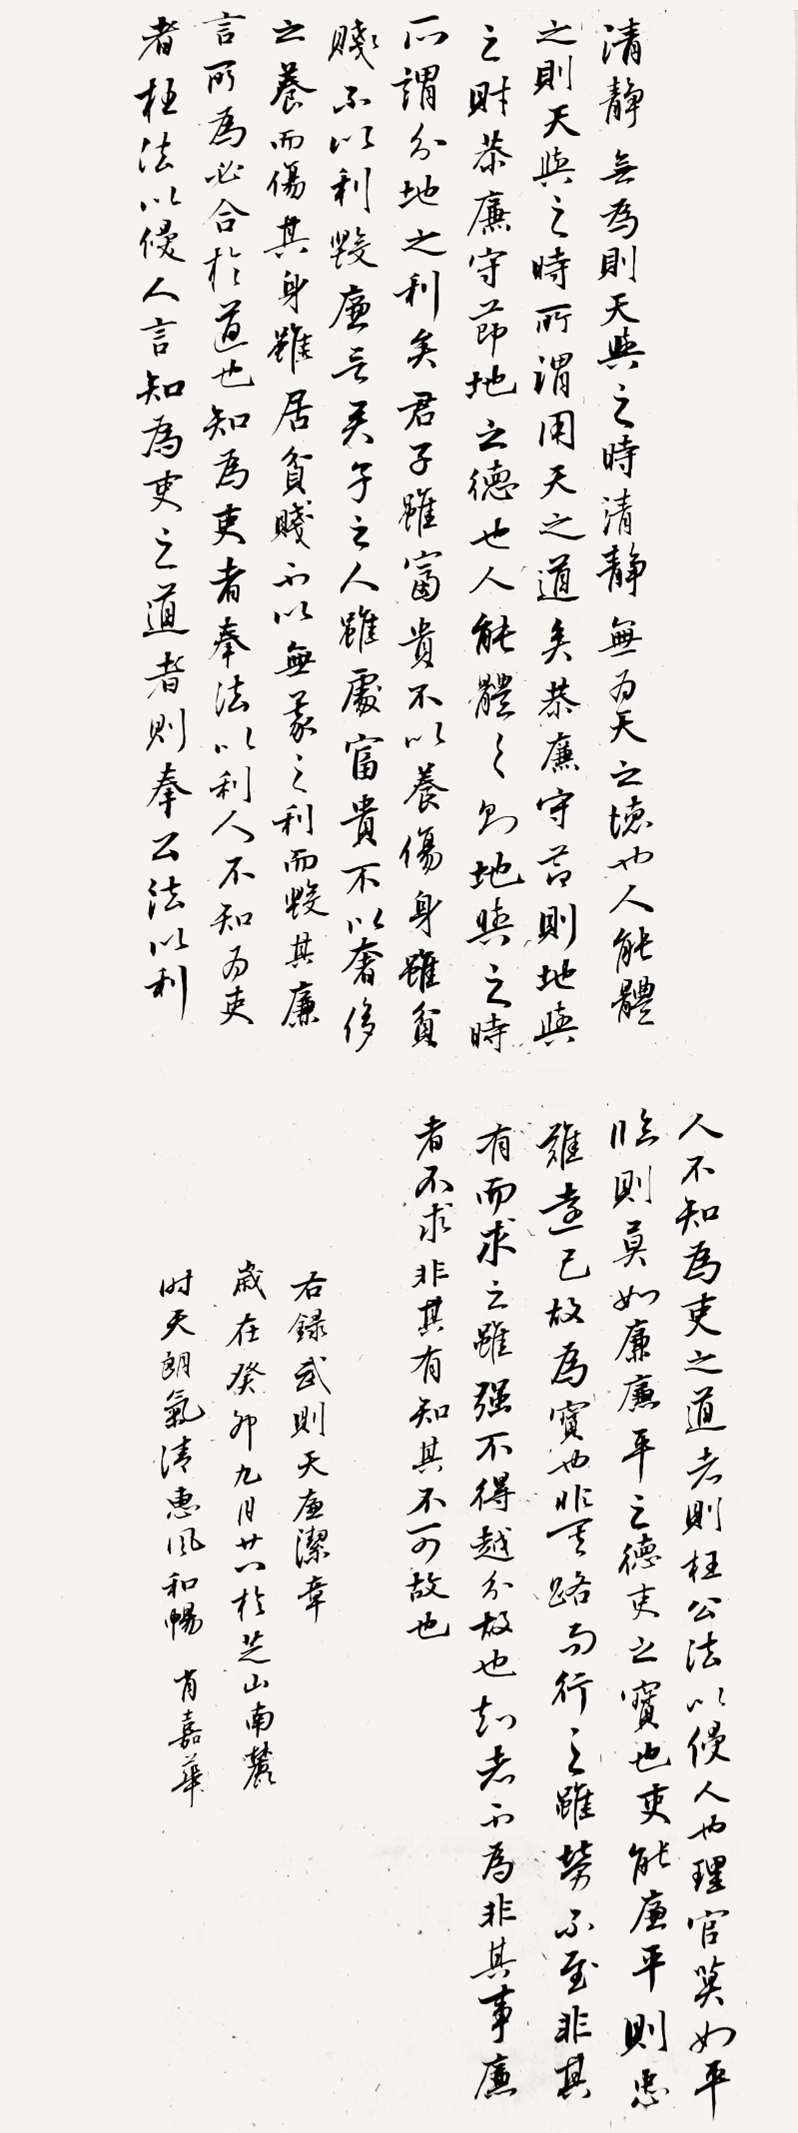 清靜無為則天與之時清靜無为天之德也人能體
之則天與之時所謂用天之道矣恭廉守节則地與
之財恭廉守節地之德也人能體之則地與之時
所謂分地之利矣君子雖富貴不以養傷身雖貧
賤不以利毀廉君子之人雖處富貴不以奢侈
之養而傷其身雖居貧賤不以無義之利而毀其廉
言所為必合於道也知為吏者奉法以利人不知为吏
者枉法以侵人言知為吏之道者則奉公法以利
人不知為吏之道者則枉公法以侵人也理官莫如平
臨則莫如廉廉平之德吏之寶也吏能廉平則患
難遠己故為寶也非其路而行之雖勞不至非其
有而求之雖强不得越分故也知者不為非其事廉
者不求非其有知其不可故也
右録武則天廉潔章
歲在癸卯九月廿八於芝山南麓
时天朗氣清惠风和暢 肖嘉華